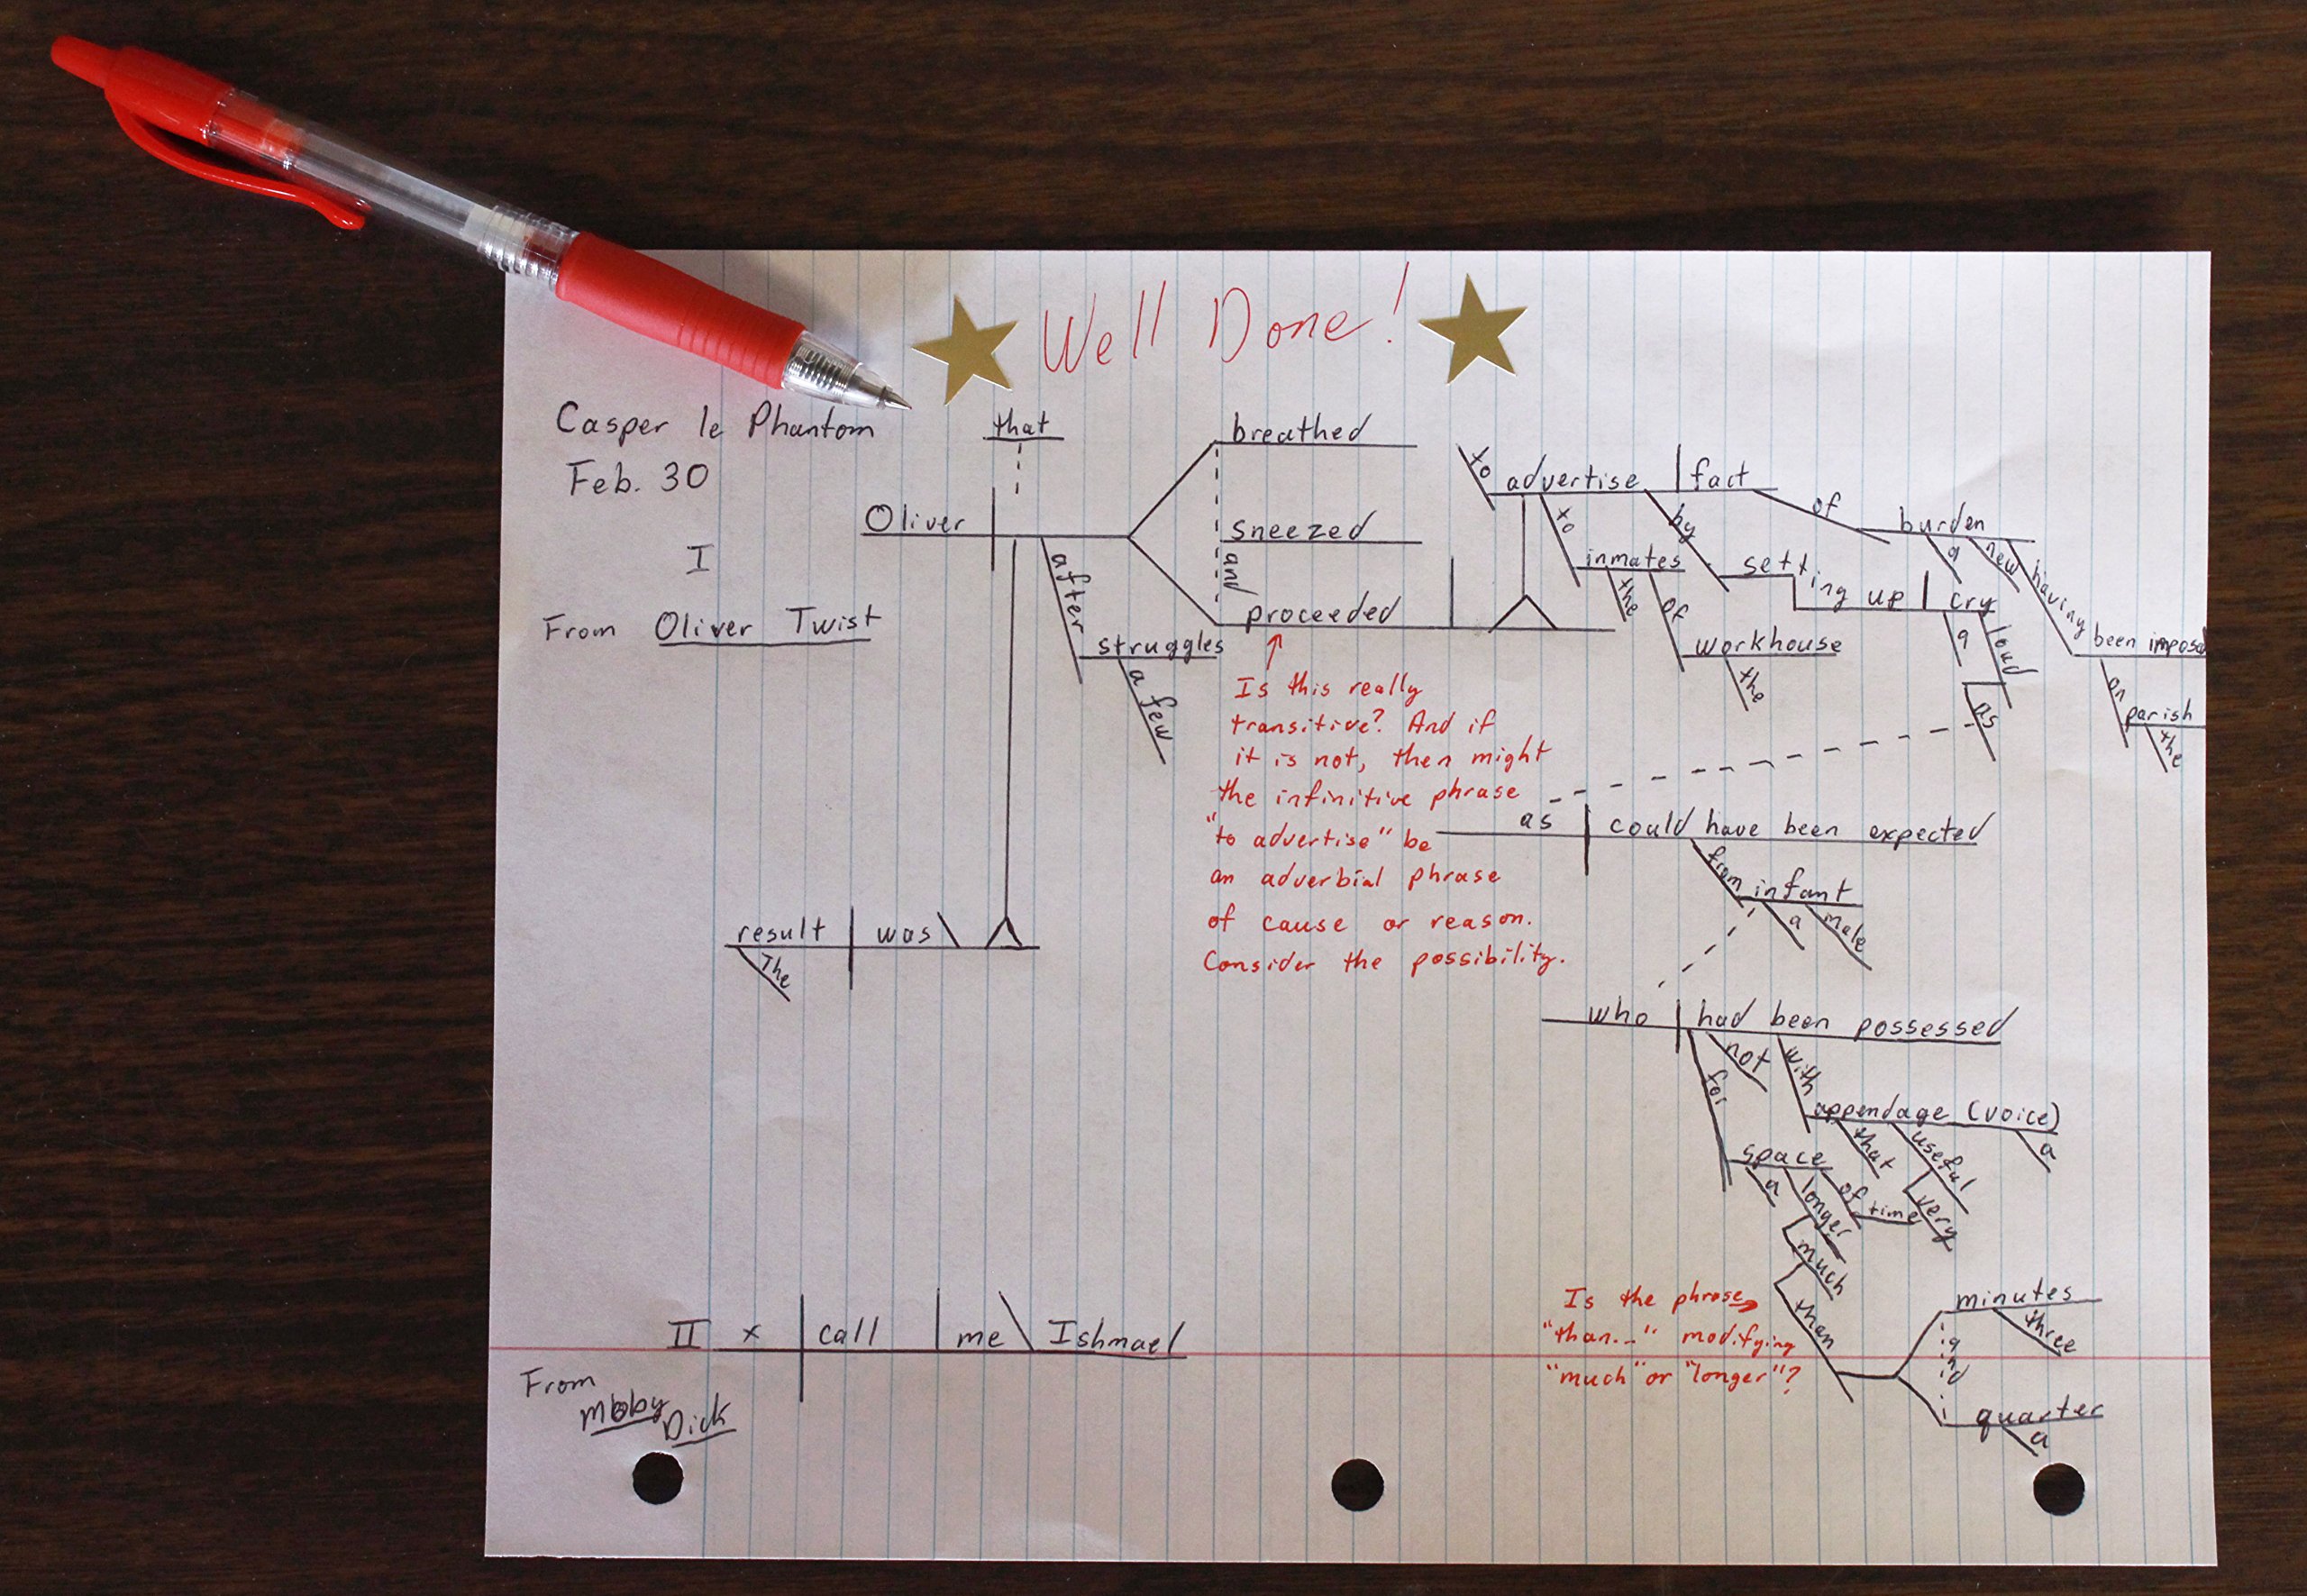 Well Done!
Casper le Phantom
Feb. 30
I
From Oliver Twist
that
Oliver
breathed
sneezed
and
proceeded
after
struggles
a few
to advertise fact
of
burden
a
new
having
been impose
on
parish
the
to
inmates
the
of
workhouse
the
by
setting up cry
a
loud
as
as could have been expected
from
infant
a
male
who had been possessed
not
with
appendage (voice)
that
useful
a
very
for
space
a
longer
of
time
much
than
minutes
three
and
quarter
a
result was
The
Is this really
transitive? And if
it is not, then might
the infinitive phrase
"to advertise" be
an adverbial phrase
of cause or reason.
Consider the possibility.
Is the phrase
"than..." modifying
"much" or "longer"?
II x call me Ishmael
From
Moby
Dick